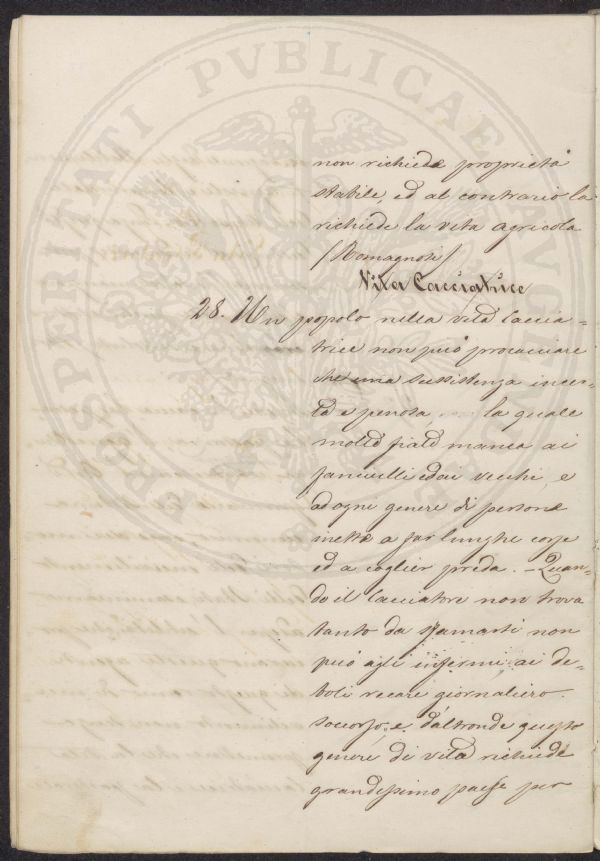 PROSPERITATI PVBLICAE AVGENDAE
non richiede proprietà
stabile, ed al contrario la
richiede la vita agricola
/Romagnosi/
Vita Cacciatrice
28. Un popolo nella vita caccia=
trice non può procacciare
che una sussistenza incer=
ta e penosa, la quale
molte fiate manca ai
fanciulli ed ai vecchi, e
ad ogni genere di persone
inette a far lunghe corse
ed a coglier preda. _ Quan=
do il cacciatore non trova
tanto da sfamarsi non
può agli infermi ai de=
boli recare giornaliero
soccorso, e d'altronde questo
genere di vita richiede
grandissimo paese per